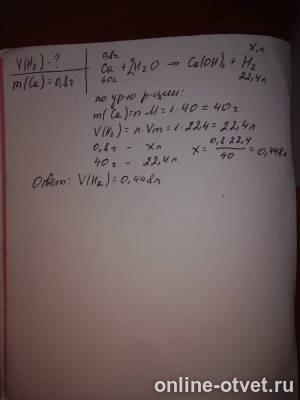 V(H₂) - ?
m(Ca) = 0,8г
0,8г x л
Ca + 2H₂O → Ca(OH)₂ + H₂
40г 22,4л
по ур-ю р-ции:
m(Ca) = n·M = 1·40 = 40г
V(H₂) = n·Vm = 1·22,4 = 22,4л
0,8г - x л x = 0,8·22,4/40 = 0,448л
40г - 22,4л
Ответ: V(H₂) = 0,448л
online-otvet.ru